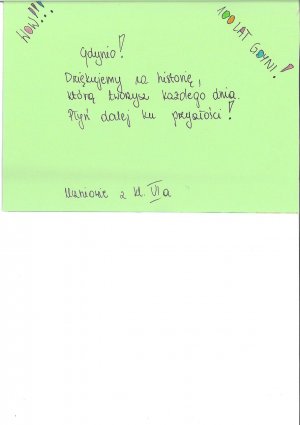 WOW!!!
100 LAT GDYNI!
Gdynio!
Dziękujemy za historię,
którą tworzysz każdego dnia.
Płyń dalej ku przyszłości!
Uczniowie z kl. VIa